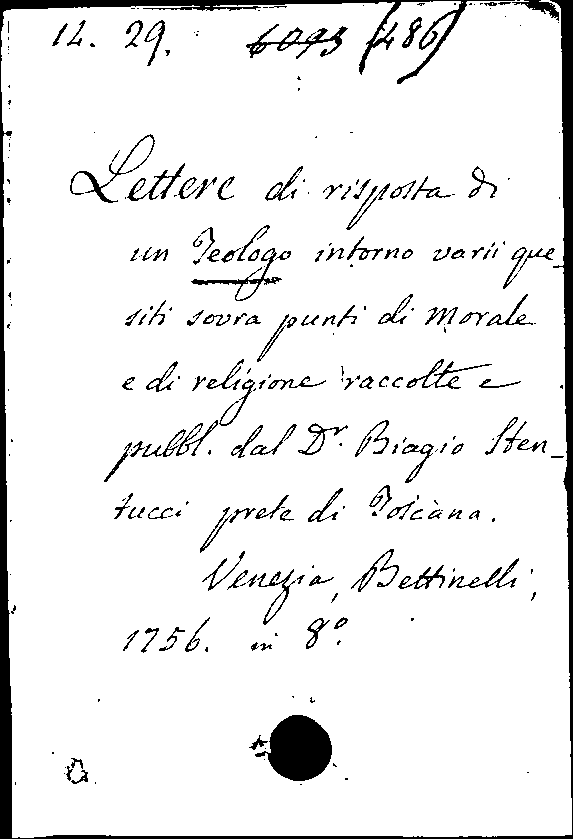 14. 29. 6093 (486)
Lettere di risposta di
un Teologo intorno varii que_
siti sovra punti di Morale
e di religione raccolte e
pubbl. dal Dr. Biagio Sten_
tucci prete di Toscana.
Venezia, Bettinelli,
1756. in 8º.